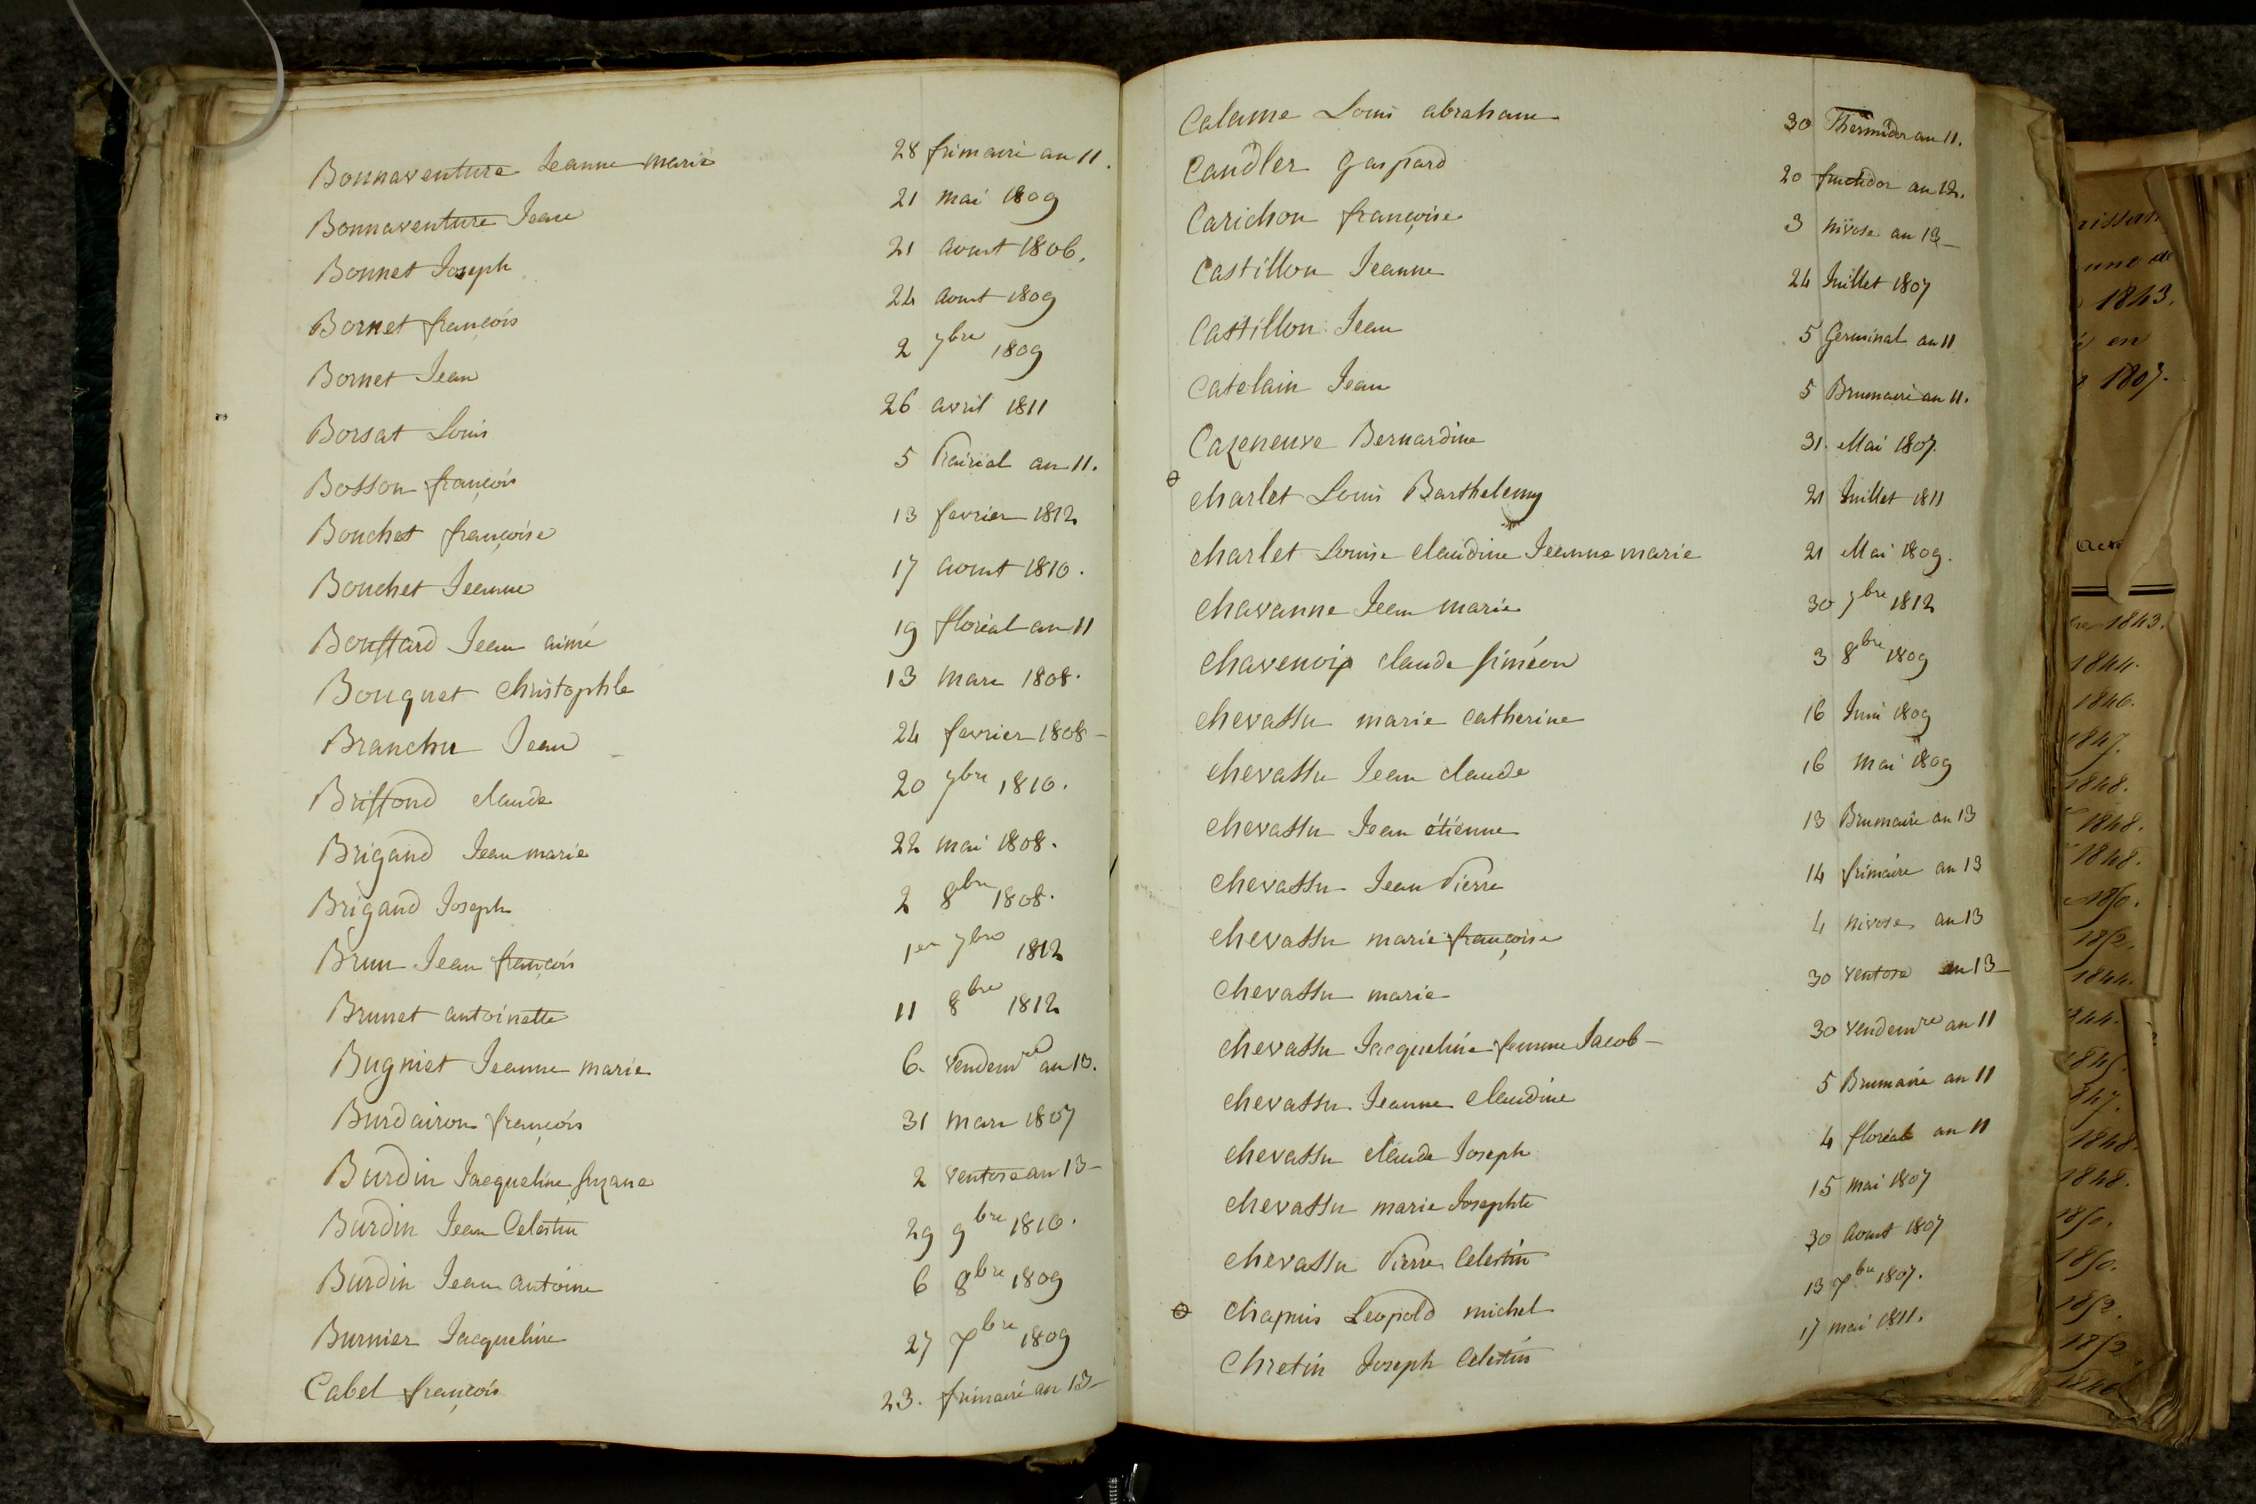 Bonnaventure Jeanne marie 28 frimaire an 11.
Bonnaventure Jean 21 mai 1809
Bonnet Joseph 21 aout 1806.
Bornet françois 24 aout 1809
Bornet Jean 2 7bre 1809
Borsat Louis 26 avril 1811
Bosson françois 5 Prairial an 11.
Bouchet françoise 13 fevrier 1812
Bouchet Jeanne 17 aout 1810.
Bouffard Jean aimé 19 floréal an 11
Bouquet Christophle 13 mars 1808.
Branchu Jean 24 fevrier 1808 -
Briffond claude 20 7bre 1810.
Brigand Jean marie 22 mai 1808.
Brigand Joseph 2 8bre 1808.
Brun Jean françois 1er 7bre 1812
Brunet antoinette 11 8bre 1812
Bugniet Jeanne marie 6. Vendemre an 13.
Burdairon françois 31 mars 1807
Burdin Jacqueline suzane 2 Ventose an 13 -
Burdin Jean Celestin 29 9bre 1810.
Burdin Jean antoine 6 8bre 1809
Burnier Jacqueline 27 7bre 1809
Cabel françois 23. frimaire an 13 -
Calame Louis abraham 30 Thermidor an 11.
Candler gaspard 20 fructidor an 12.
Carichon françoise 3 nivose an 13 -
Castillon Jeanne 24 Juillet 1807
Castillon Jean 5 Germinal an 11
Catelain Jean 5 Brumaire an 11.
Cazeneuve Bernardine 31. Mai 1807.
charlet Louis Barthelemy 21 Juillet 1811
charlet Louise claudine Jeanne marie 21 Mai 1809.
chavanne Jean marie 30 7bre 1812
chavenoix claude siméon 3 8bre 1809
chevassu marie catherine 16 Juin 1809
chevassu Jean claude 16 mai 1809
chevassu Jean étienne 13 Brumaire an 13
chevassu Jean Pierre 14 frimaire an 13
chevassu marie françoise 4 nivose an 13
chevassu marie 30 ventose an 13 -
chevassu Jacqueline femme Jacob - 30 vendemre an 11
chevassu Jeanne claudine 5 Brumaire an 11
chevassu claude Joseph 4 floréal an 11
chevassu marie Josephte 15 mai 1807
chevassu Pierre Celestin 30 aout 1807
chapuis Leopold michel 13 7bre 1807.
Chretin Joseph Celestin 17 mai 1811.
une de
1843.
en
1807.
1843.
1844.
1846.
1847.
1848.
1848.
1848.
1844.
1847.
1848.
1848.